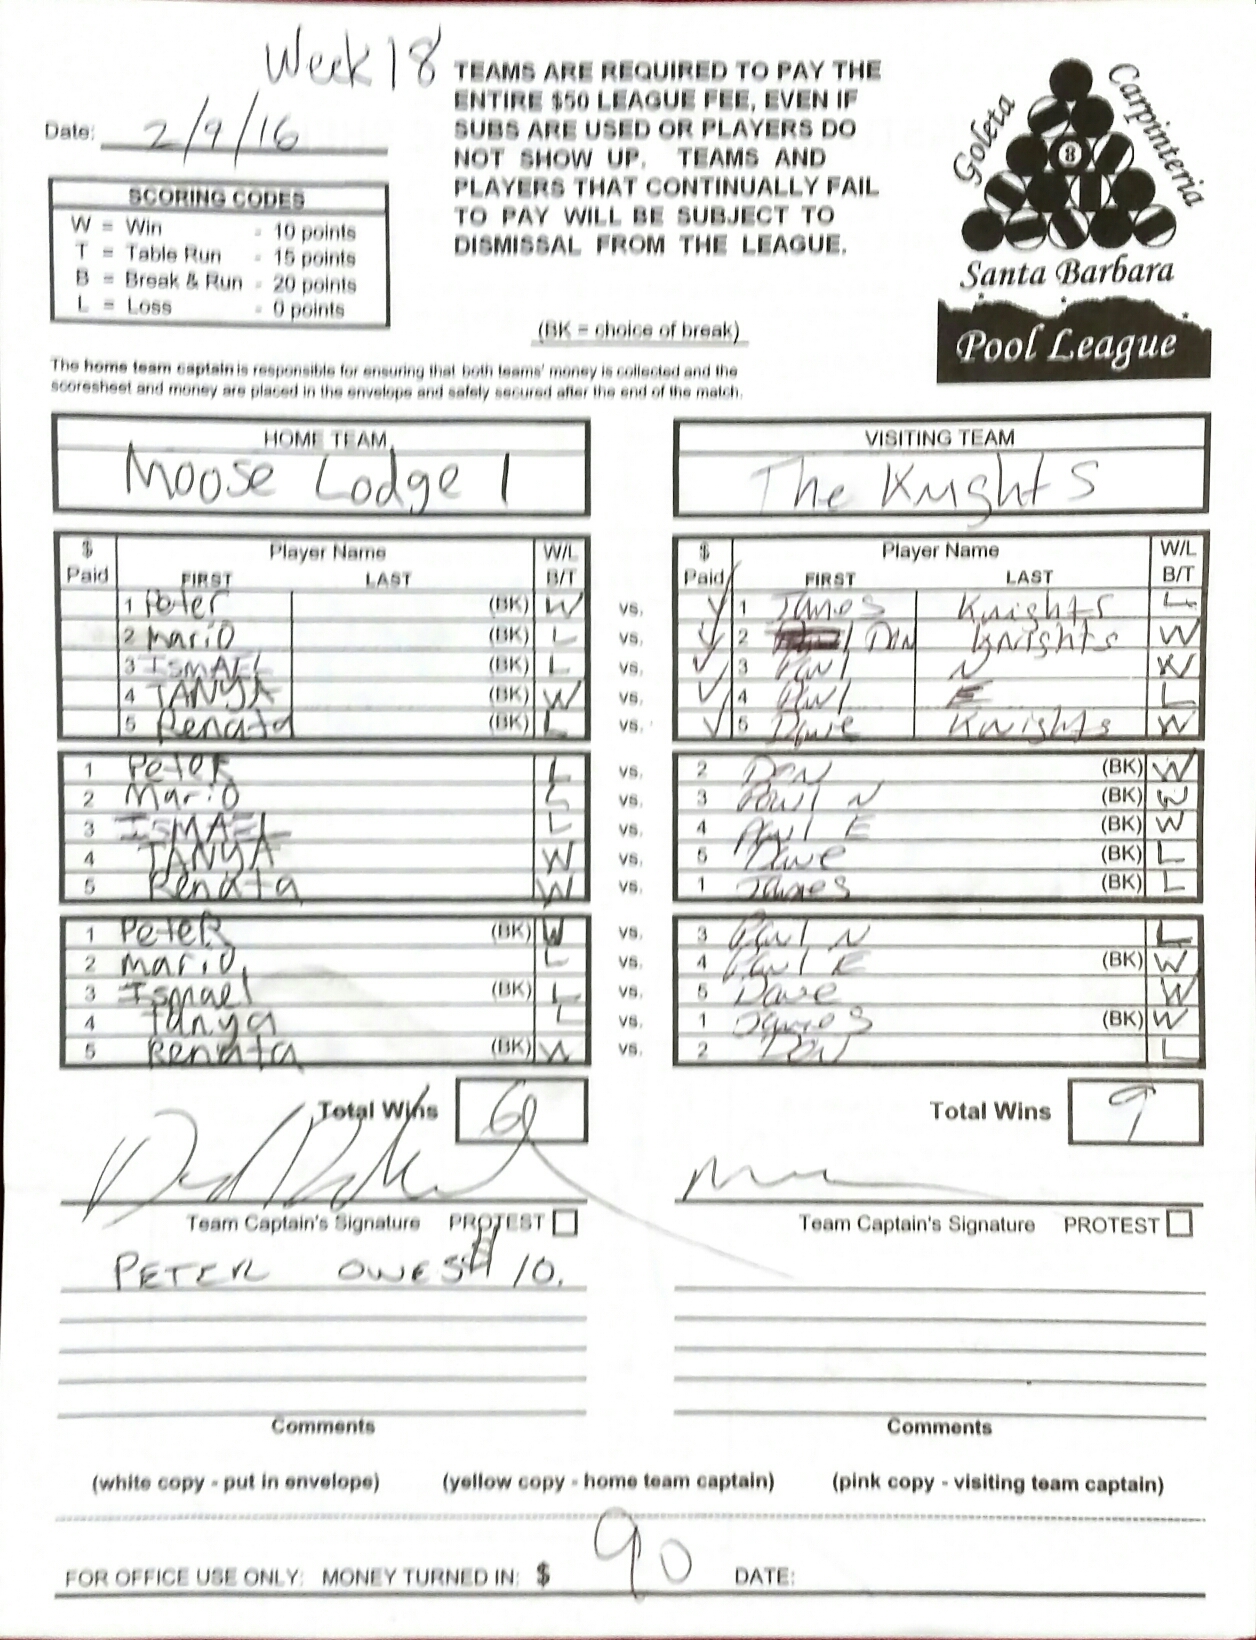 Week 18
Date: 2/9/16
TEAMS ARE REQUIRED TO PAY THE
ENTIRE $50 LEAGUE FEE, EVEN IF
SUBS ARE USED OR PLAYERS DO
NOT SHOW UP. TEAMS AND
PLAYERS THAT CONTINUALLY FAIL
TO PAY WILL BE SUBJECT TO
DISMISSAL FROM THE LEAGUE.
Goleta
Carpinteria
8
Santa Barbara
Pool League
SCORING CODES
W = Win - 10 points
T = Table Run - 15 points
B = Break & Run - 20 points
L = Loss - 0 points
(BK = choice of break)
The home team captain is responsible for ensuring that both teams' money is collected and the
scoresheet and money are placed in the envelope and safely secured after the end of the match.
HOME TEAM VISITING TEAM
Moose Lodge 1 The Knights
$ Paid Player Name FIRST LAST W/L B/T $ Paid Player Name FIRST LAST W/L B/T
1 Peter (BK) W vs. ✓ 1 James Knights L
2 Mario (BK) L vs. ✓ 2 Don Knights W
3 ISMAEL (BK) L vs. ✓ 3 Paul N W
4 TANYA (BK) W vs. ✓ 4 Paul E L
5 Renata (BK) L vs. ✓ 5 Dave Knights W
1 PeteR L vs. 2 Don (BK) W
2 MariO L vs. 3 Paul N (BK) W
3 ISMAEL L vs. 4 Paul E (BK) W
4 TANYA W vs. 5 Dave (BK) L
5 Renata W vs. 1 James (BK) L
1 PeteR (BK) W vs. 3 Paul N L
2 Mario L vs. 4 Paul E (BK) W
3 Ismael (BK) L vs. 5 Dave W
4 Tanya L vs. 1 James (BK) W
5 Renata (BK) W vs. 2 Don L
Total Wins 6 Total Wins 9
Team Captain's Signature PROTEST Team Captain's Signature PROTEST
PETER OWES $10.
Comments Comments
(white copy - put in envelope) (yellow copy - home team captain) (pink copy - visiting team captain)
FOR OFFICE USE ONLY: MONEY TURNED IN: $ 90 DATE: